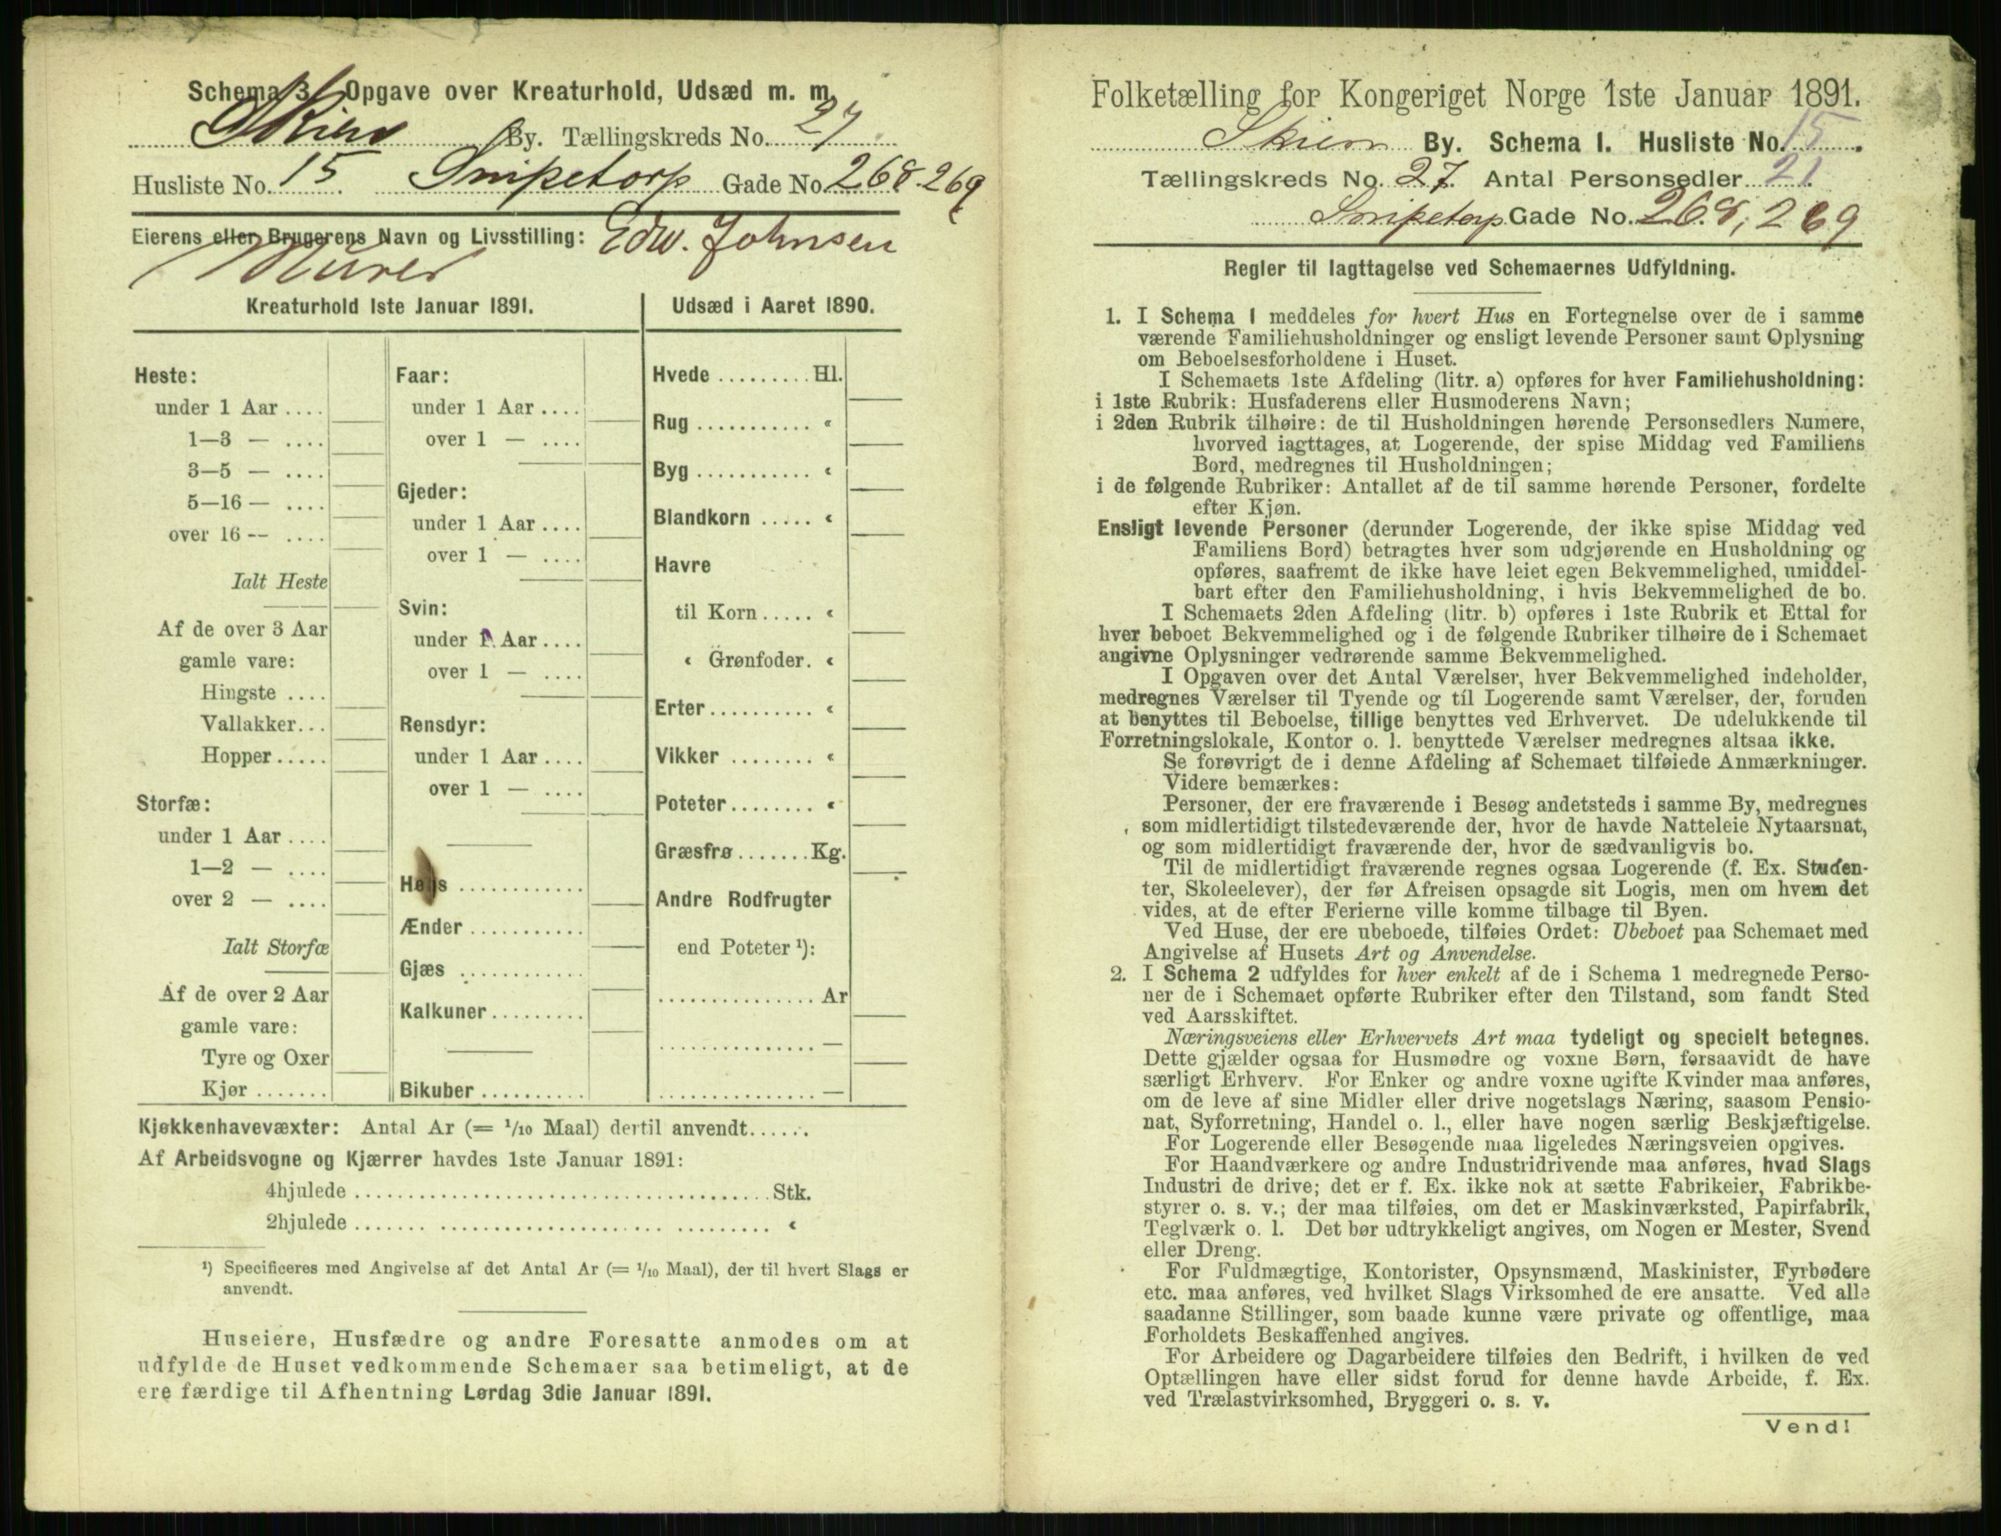 Schema 3. Opgave over Kreaturhold, Udsæd m. m.
Skien By. Tællingskreds No. 27
Husliste No. 15 Snipetorp Gade No. 268-269
Eierens eller Brugerens Navn og Livsstilling: Edw. Johnsen
Murer
Kreaturhold 1ste Januar 1891.
Heste:
under 1 Aar ....
1—3 — ....
3—5 — ....
5—16 — ....
over 16 -- ....
Ialt Heste
Af de over 3 Aar
gamle vare:
Hingste ....
Vallakker...
Hopper.....
Storfæ:
under 1 Aar ....
1—2 — ....
over 2 — ....
Ialt Storfæ
Af de over 2 Aar
gamle vare:
Tyre og Oxer
Kjør .......
Faar:
under 1 Aar ....
over 1 — ....
Gjeder:
under 1 Aar ....
over 1 — ....
Svin:
under 1 Aar ....
over 1 — ....
Rensdyr:
under 1 Aar ....
over 1 — ....
Høns ............
Ænder ...........
Gjæs ............
Kalkuner.........
Bikuber ..........
Udsæd i Aaret 1890.
Hvede ......... Hl.
Rug ........... «
Byg ........... «
Blandkorn ..... «
Havre
til Korn ..... «
« Grønfoder. «
Erter.......... «
Vikker ........ «
Poteter........ «
Græsfrø ....... Kg.
Andre Rodfrugter
end Poteter ¹):
............... Ar
............... —
............... —
Kjøkkenhavevæxter: Antal Ar (= 1/10 Maal) dertil anvendt......
Af Arbeidsvogne og Kjærrer havdes 1ste Januar 1891:
4hjulede ...................................... Stk.
2hjulede ....... ..................... ......... «
¹) Specificeres med Angivelse af det Antal Ar (= 1/10 Maal), der til hvert Slags er
anvendt.
Huseiere, Husfædre og andre Foresatte anmodes om at
udfylde de Huset vedkommende Schemaer saa betimeligt, at de
ere færdige til Afhentning Lørdag 3die Januar 1891.
Folketælling for Kongeriget Norge 1ste Januar 1891.
Skien By. Schema I. Husliste No. 15.
Tællingskreds No. 27. Antal Personsedler 21.
Snipetorp Gade No. 268, 269
Regler til Iagttagelse ved Schemaernes Udfyldning.
1. I Schema I meddeles for hvert Hus en Fortegnelse over de i samme
værende Familiehusholdninger og ensligt levende Personer samt Oplysning
om Beboelsesforholdene i Huset.
I Schemaets 1ste Afdeling (litr. a) opføres for hver Familiehusholdning:
i 1ste Rubrik: Husfaderens eller Husmoderens Navn;
i 2den Rubrik tilhøire: de til Husholdningen hørende Personsedlers Numere,
hvorved iagttages, at Logerende, der spise Middag ved Familiens
Bord, medregnes til Husholdningen;
i de følgende Rubriker: Antallet af de til samme hørende Personer, fordelte
efter Kjøn.
Ensligt levende Personer (derunder Logerende, der ikke spise Middag ved
Familiens Bord) betragtes hver som udgjørende en Husholdning og
opføres, saafremt de ikke have leiet egen Bekvemmelighed, umiddel-
bart efter den Familiehusholdning, i hvis Bekvemmelighed de bo.
I Schemaets 2den Afdeling (litr. b) opføres i 1ste Rubrik et Ettal for
hver beboet Bekvemmelighed og i de følgende Rubriker tilhøire de i Schemaet
angivne Oplysninger vedrørende samme Bekvemmelighed.
I Opgaven over det Antal Værelser, hver Bekvemmelighed indeholder,
medregnes Værelser til Tyende og til Logerende samt Værelser, der, foruden
at benyttes til Beboelse, tillige benyttes ved Erhvervet. De udelukkende til
Forretningslokale, Kontor o. l. benyttede Værelser medregnes altsaa ikke.
Se forøvrigt de i denne Afdeling af Schemaet tilføiede Anmærkninger.
Videre bemærkes:
Personer, der ere fraværende i Besøg andetsteds i samme By, medregnes
som midlertidigt tilstedeværende der, hvor de havde Natteleie Nytaarsnat,
og som midlertidigt fraværende der, hvor de sædvanligvis bo.
Til de midlertidigt fraværende regnes ogsaa Logerende (f. Ex. Studen-
ter, Skoleelever), der før Afreisen opsagde sit Logis, men om hvem det
vides, at de efter Ferierne ville komme tilbage til Byen.
Ved Huse, der ere ubeboede, tilføies Ordet: Ubeboet paa Schemaet med
Angivelse af Husets Art og Anvendelse.
2. I Schema 2 udfyldes for hver enkelt af de i Schema 1 medregnede Perso-
ner de i Schemaet opførte Rubriker efter den Tilstand, som fandt Sted
ved Aarsskiftet.
Næringsveiens eller Erhvervets Art maa tydeligt og specielt betegnes.
Dette gjælder ogsaa for Husmødre og voxne Børn, forsaavidt de have
særligt Erhverv. For Enker og andre voxne ugifte Kvinder maa anføres,
om de leve af sine Midler eller drive nogetslags Næring, saasom Pensio-
nat, Syforretning, Handel o. l., eller have nogen særlig Beskjæftigelse.
For Logerende eller Besøgende maa ligeledes Næringsveien opgives.
For Haandværkere og andre Industridrivende maa anføres, hvad Slags
Industri de drive; det er f. Ex. ikke nok at sætte Fabrikeier, Fabrikbe-
styrer o. s. v.; der maa tilføies, om det er Maskinværksted, Papirfabrik,
Teglværk o. l. Det bør udtrykkeligt angives, om Nogen er Mester, Svend
eller Dreng.
For Fuldmægtige, Kontorister, Opsynsmænd, Maskinister, Fyrbødere
etc. maa anføres, ved hvilket Slags Virksomhed de ere ansatte. Ved alle
saadanne Stillinger, som baade kunne være private og offentlige, maa
Forholdets Beskaffenhed angives.
For Arbeidere og Dagarbeidere tilføies den Bedrift, i hvilken de ved
Optællingen have eller sidst forud for denne havde Arbeide, f. Ex.
ved Trælastvirksomhed, Bryggeri o. s. v.
Vend!